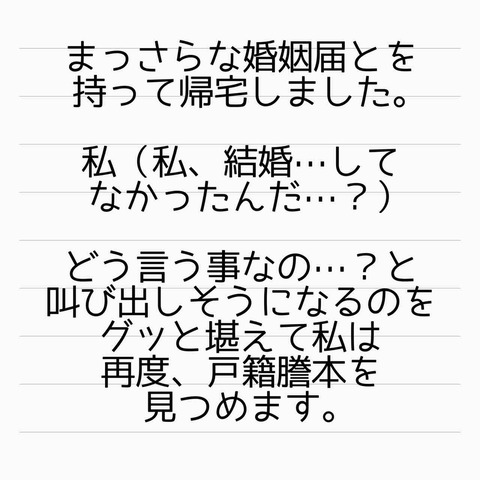 まっさらな婚姻届とを
持って帰宅しました。
私（私、結婚…して
なかったんだ…？）
どう言う事なの…？と
叫び出しそうになるのを
グッと堪えて私は
再度、戸籍謄本を
見つめます。